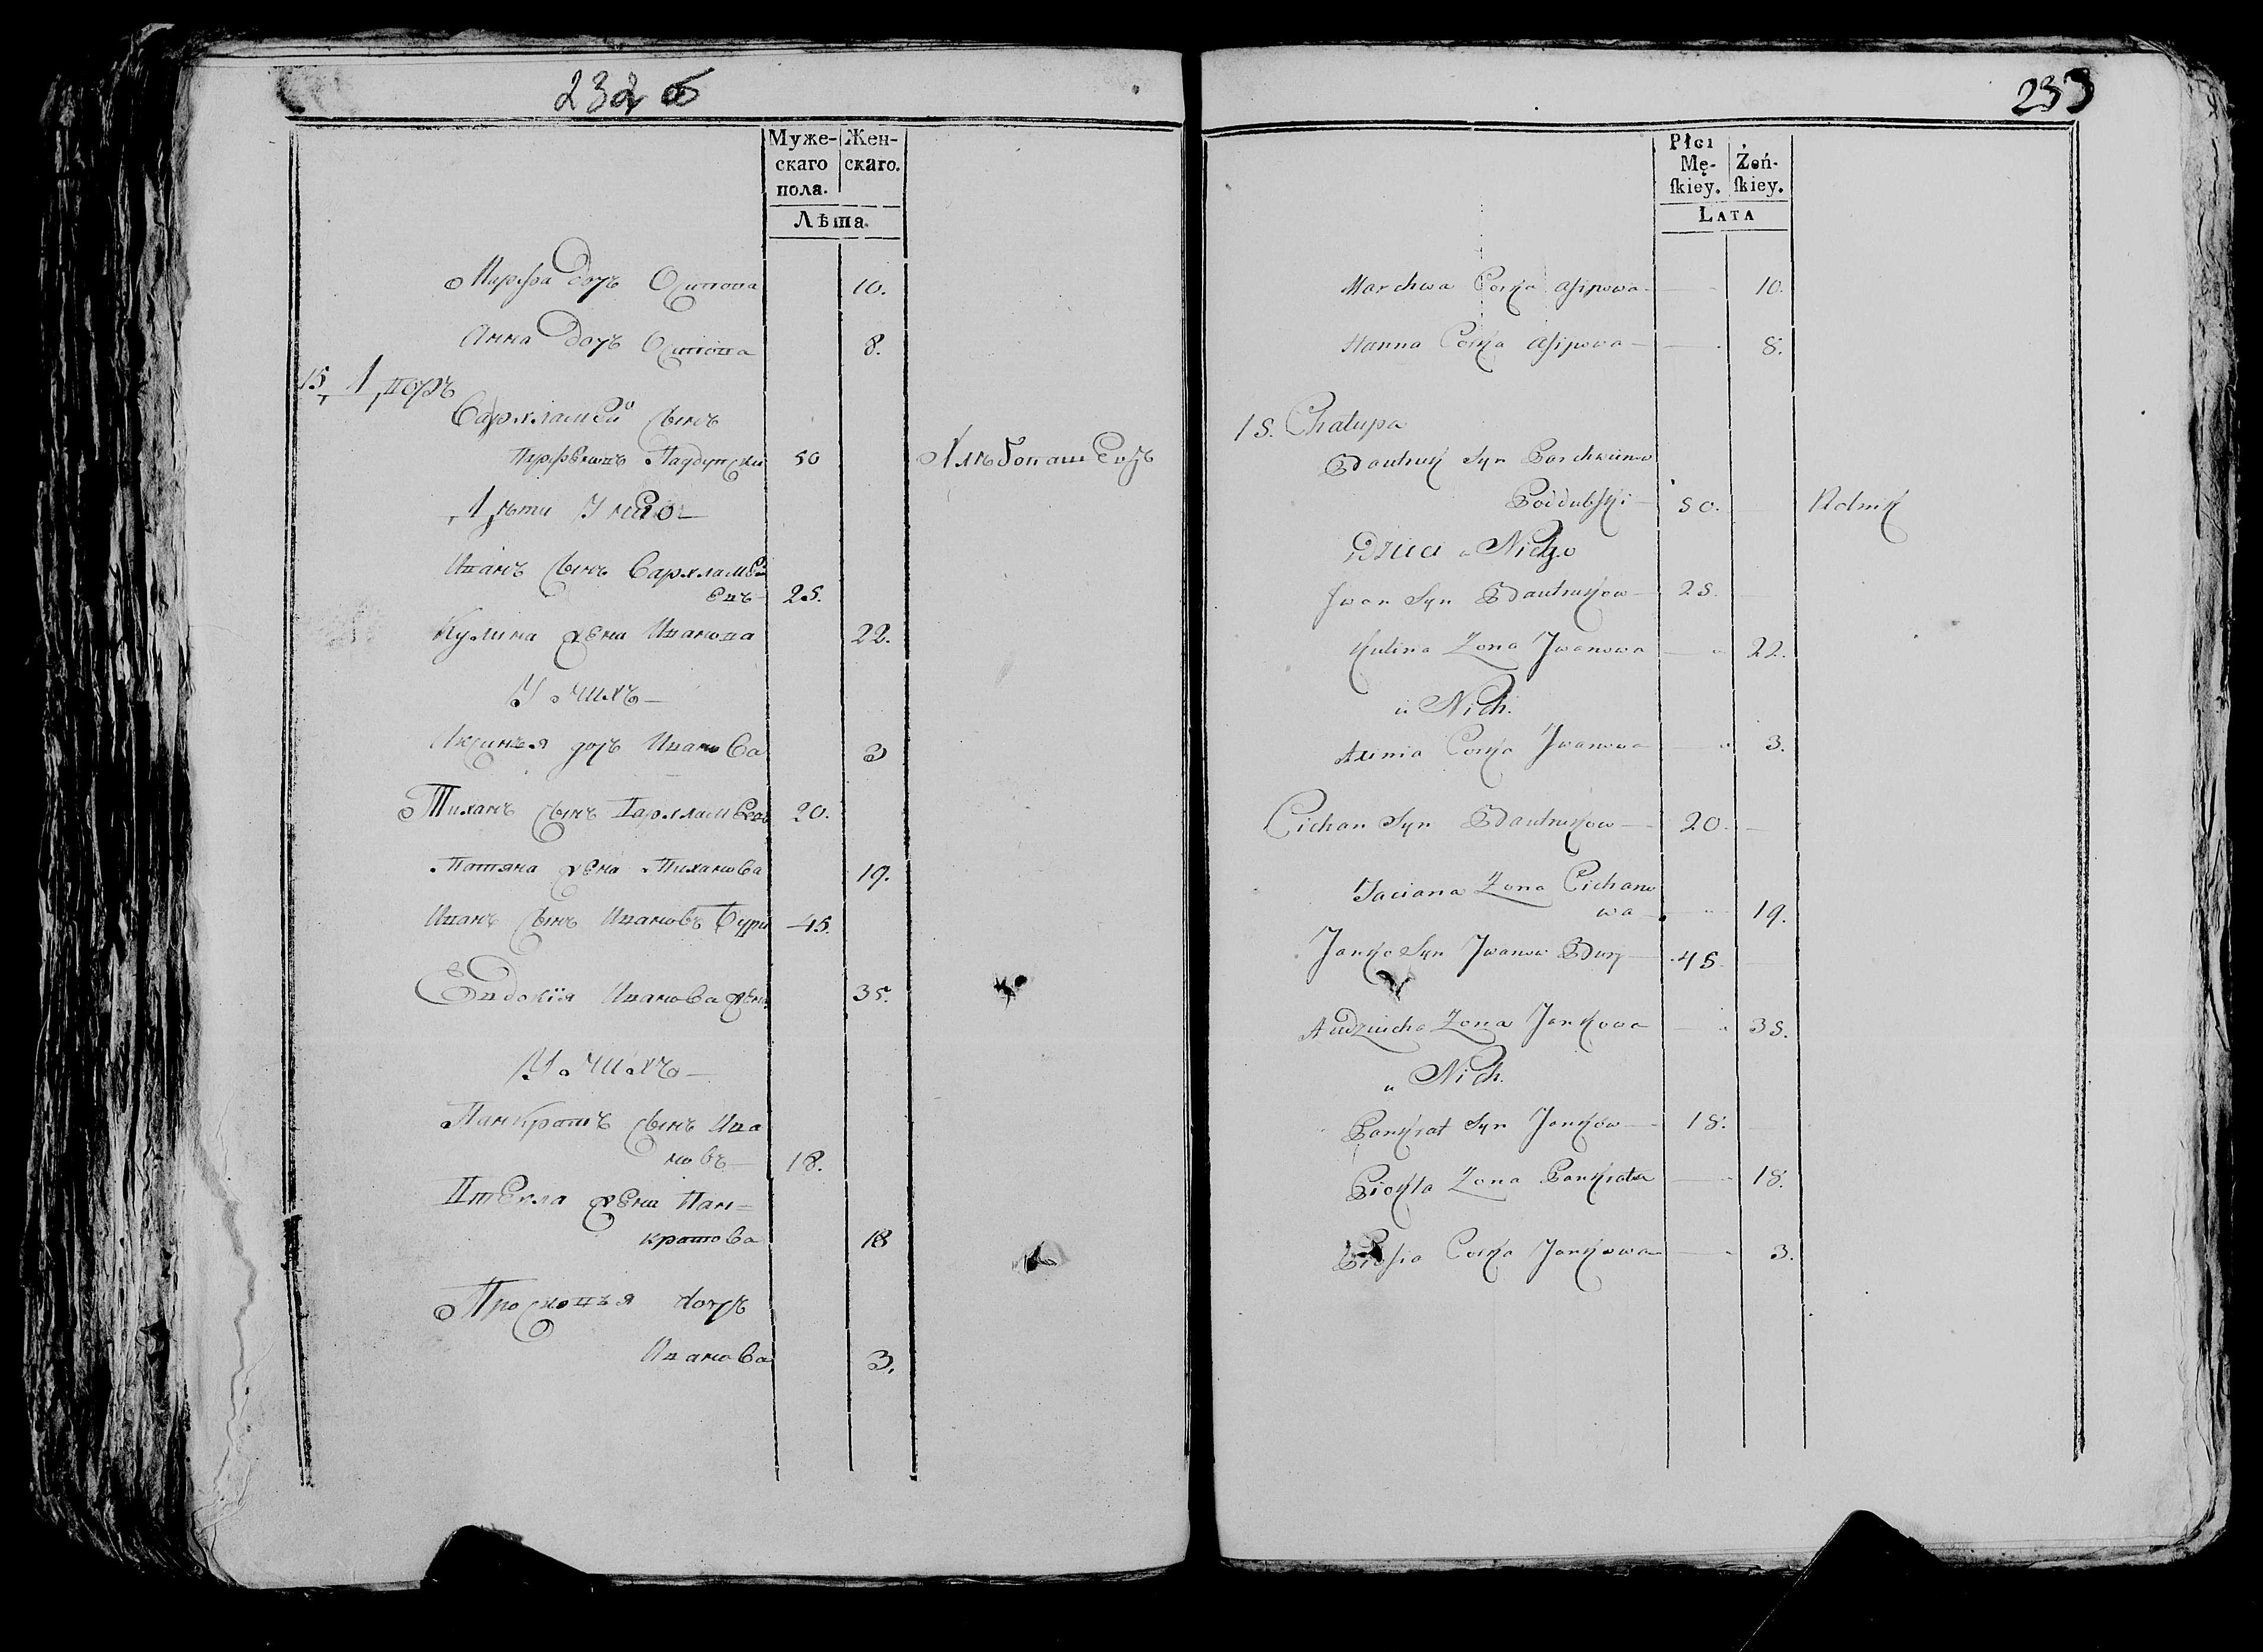 232 б
Муже-
скаго
пола.
Жен-
скаго.
Лѣта.
Марѳа дочь Осипова 10.
Анна дочь Осипова 8.
15, 1, дворъ
Варѳламей сынъ
50 Хлѣбопашецъ
Дѣти У него
Иванъ сынъ Варѳламеи
евъ 25.
Кулина жена Иванова 22.
У нихъ
Аксинья дочь Иванова 3
Тиханъ сынъ Варѳламеевъ 20.
Татяна жена Тиханова 19.
Иванъ сынъ Ивановъ 45.
Евдокія Иванова жена 35.
У нихъ
Панкратъ сынъ Ива
новъ 18.
жена Пан=
кратова 18
Просковья дочь
Иванова 3.
233
Płci
Mę-
ſkiey.
Żeń-
ſkiey.
LATA
Marchwa Corka Asipowa 10.
Hanna Corka Asipowa 8.
15. Chalupa
Bautruk Syn
Poddubski 50. Rolnik
Dzieci u Niego
Iwan Syn Bautrukow 25.
Kulina Zona Jwanowa 22.
u Nich.
Axinia Corka Jwanowa 3.
Cichan Syn Bautrukow 20.
Taciana Zona Cichano
wa 19.
Janko Syn Jwanow 45
Audziucha Zona Jankowa 35.
u Nich.
Pankrat Syn Jankow 18.
Piokla Zona Pankrata 18.
Corka Jankowa 3.